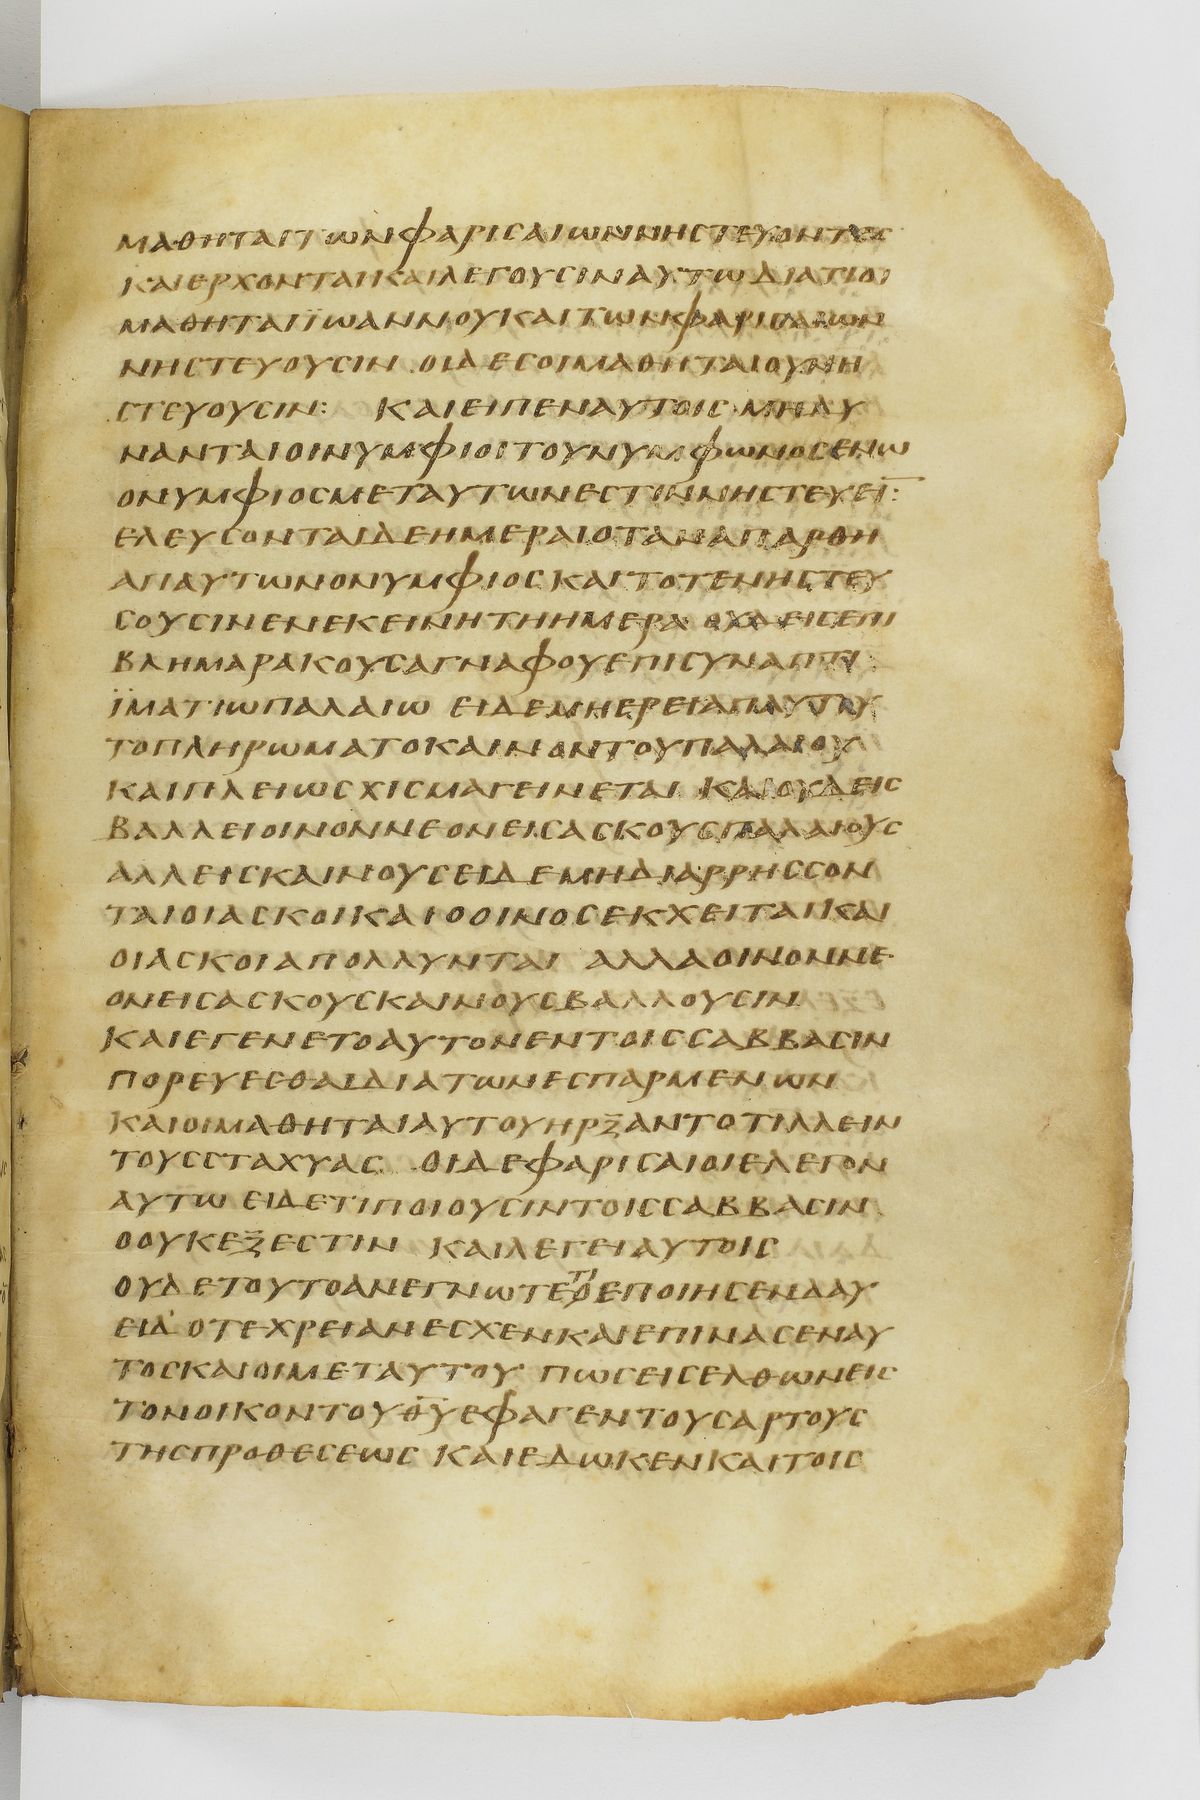 ΜΑΘΗΤΑΙΤΩΝΦΑΡΙCΑΙΩΝΝΗCΤΕΥΟΝΤΕC
ΚΑΙΕΡΧΟΝΤΑΙΚΑΙΛΕΓΟΥCΙΝΑΥΤΩΔΙΑΤΙΟΙ
ΜΑΘΗΤΑΙΪΩΑΝΝΟΥΚΑΙΤΩΝΦΑΡΙCΑΙΩΝ
ΝΗCΤΕΥΟΥCΙΝ ΟΙΔΕCΟΙΜΑΘΗΤΑΙΟΥΝΗ
CΤΕΥΟΥCΙΝ: ΚΑΙΕΙΠΕΝΑΥΤΟΙC ΜΗΔΥ
ΝΑΝΤΑΙΟΙΝΥΜΦΙΟΙΤΟΥΝΥΜΦΩΝΟCΕΝΩ
ΟΝΥΜΦΙΟCΜΕΤΑΥΤΩΝΕCΤΙΝΝΗCΤΕΥΕΙ̅:
ΕΛΕΥCΟΝΤΑΙΔΕΗΜΕΡΑΙΟΤΑΝΑΠΑΡΘΗ
ΑΠΑΥΤΩΝΟΝΥΜΦΙΟC ΚΑΙΤΟΤΕΝΗCΤΕΥ
CΟΥCΙΝΕΝΕΚΕΙΝΗΤΗΗΜΕΡΑ ΟΥΔΕΙCΕΠΙ
ΒΛΗΜΑΡΑΚΟΥCΑΓΝΑΦΟΥΕΠΙCΥΝΑΠΤΕΙ
ΪΜΑΤΙΩΠΑΛΑΙΩ ΕΙΔΕΜΗΕΡΕΙΑΠΑΥΤΟΥ
ΤΟΠΛΗΡΩΜΑΤΟΚΑΙΝΟΝΤΟΥΠΑΛΑΙΟΥ
ΚΑΙΠΛΕΙΩCΧΙCΜΑΓΕΙΝΕΤΑΙ ΚΑΙΟΥΔΕΙC
ΒΑΛΛΕΙΟΙΝΟΝΝΕΟΝΕΙCΑCΚΟΥCΠΑΛΑΙΟΥC
ΑΛΛΕΙCΚΑΙΝΟΥCΕΙΔΕΜΗΔΙΑΡΡΗCCΟΝ
ΤΑΙΟΙΑCΚΟΙΚΑΙΟΟΙΝΟCΕΚΧΕΙΤΑΙΚΑΙ
ΟΙΑCΚΟΙΑΠΟΛΛΥΝΤΑΙ ΑΛΛΑΟΙΝΟΝΝΕ
ΟΝΕΙCΑCΚΟΥCΚΑΙΝΟΥCΒΑΛΛΟΥCΙΝ
ΚΑΙΕΓΕΝΕΤΟΑΥΤΟΝΕΝΤΟΙCCΑΒΒΑCΙΝ
ΠΟΡΕΥΕCΘΑΙΔΙΑΤΩΝΕCΠΑΡΜΕΝΩΝ
ΚΑΙΟΙΜΑΘΗΤΑΙΑΥΤΟΥΗΡΞΑΝΤΟΤΙΛΛΕΙΝ
ΤΟΥCCΤΑΧΥΑC ΟΙΔΕΦΑΡΙCΑΙΟΙΕΛΕΓΟΝ
ΑΥΤΩ ΕΙΔΕΤΙΠΟΙΟΥCΙΝΤΟΙCCΑΒΒΑCΙΝ
ΟΟΥΚΕΞΕCΤΙΝ ΚΑΙΛΕΓΕΙΑΥΤΟΙC
ΟΥΔΕΤΟΥΤΟΑΝΕΓΝΩΤΕΟΕΠΟΙΗCΕΝΔΑΥ
ΕΙΔ ΟΤΕΧΡΕΙΑΝΕCΧΕΝΚΑΙΕΠΙΝΑCΕΝΑΥ
ΤΟCΚΑΙΟΙΜΕΤΑΥΤΟΥ ΠΩCΕΙCΕΛΘΩΝΕΙC
ΤΟΝΟΙΚΟΝΤΟΥΘ̅Υ̅ΕΦΑΓΕΝΤΟΥCΑΡΤΟΥC
ΤΗCΠΡΟΘΕCΕΩC ΚΑΙΕΔΩΚΕΝΚΑΙΤΟΙC